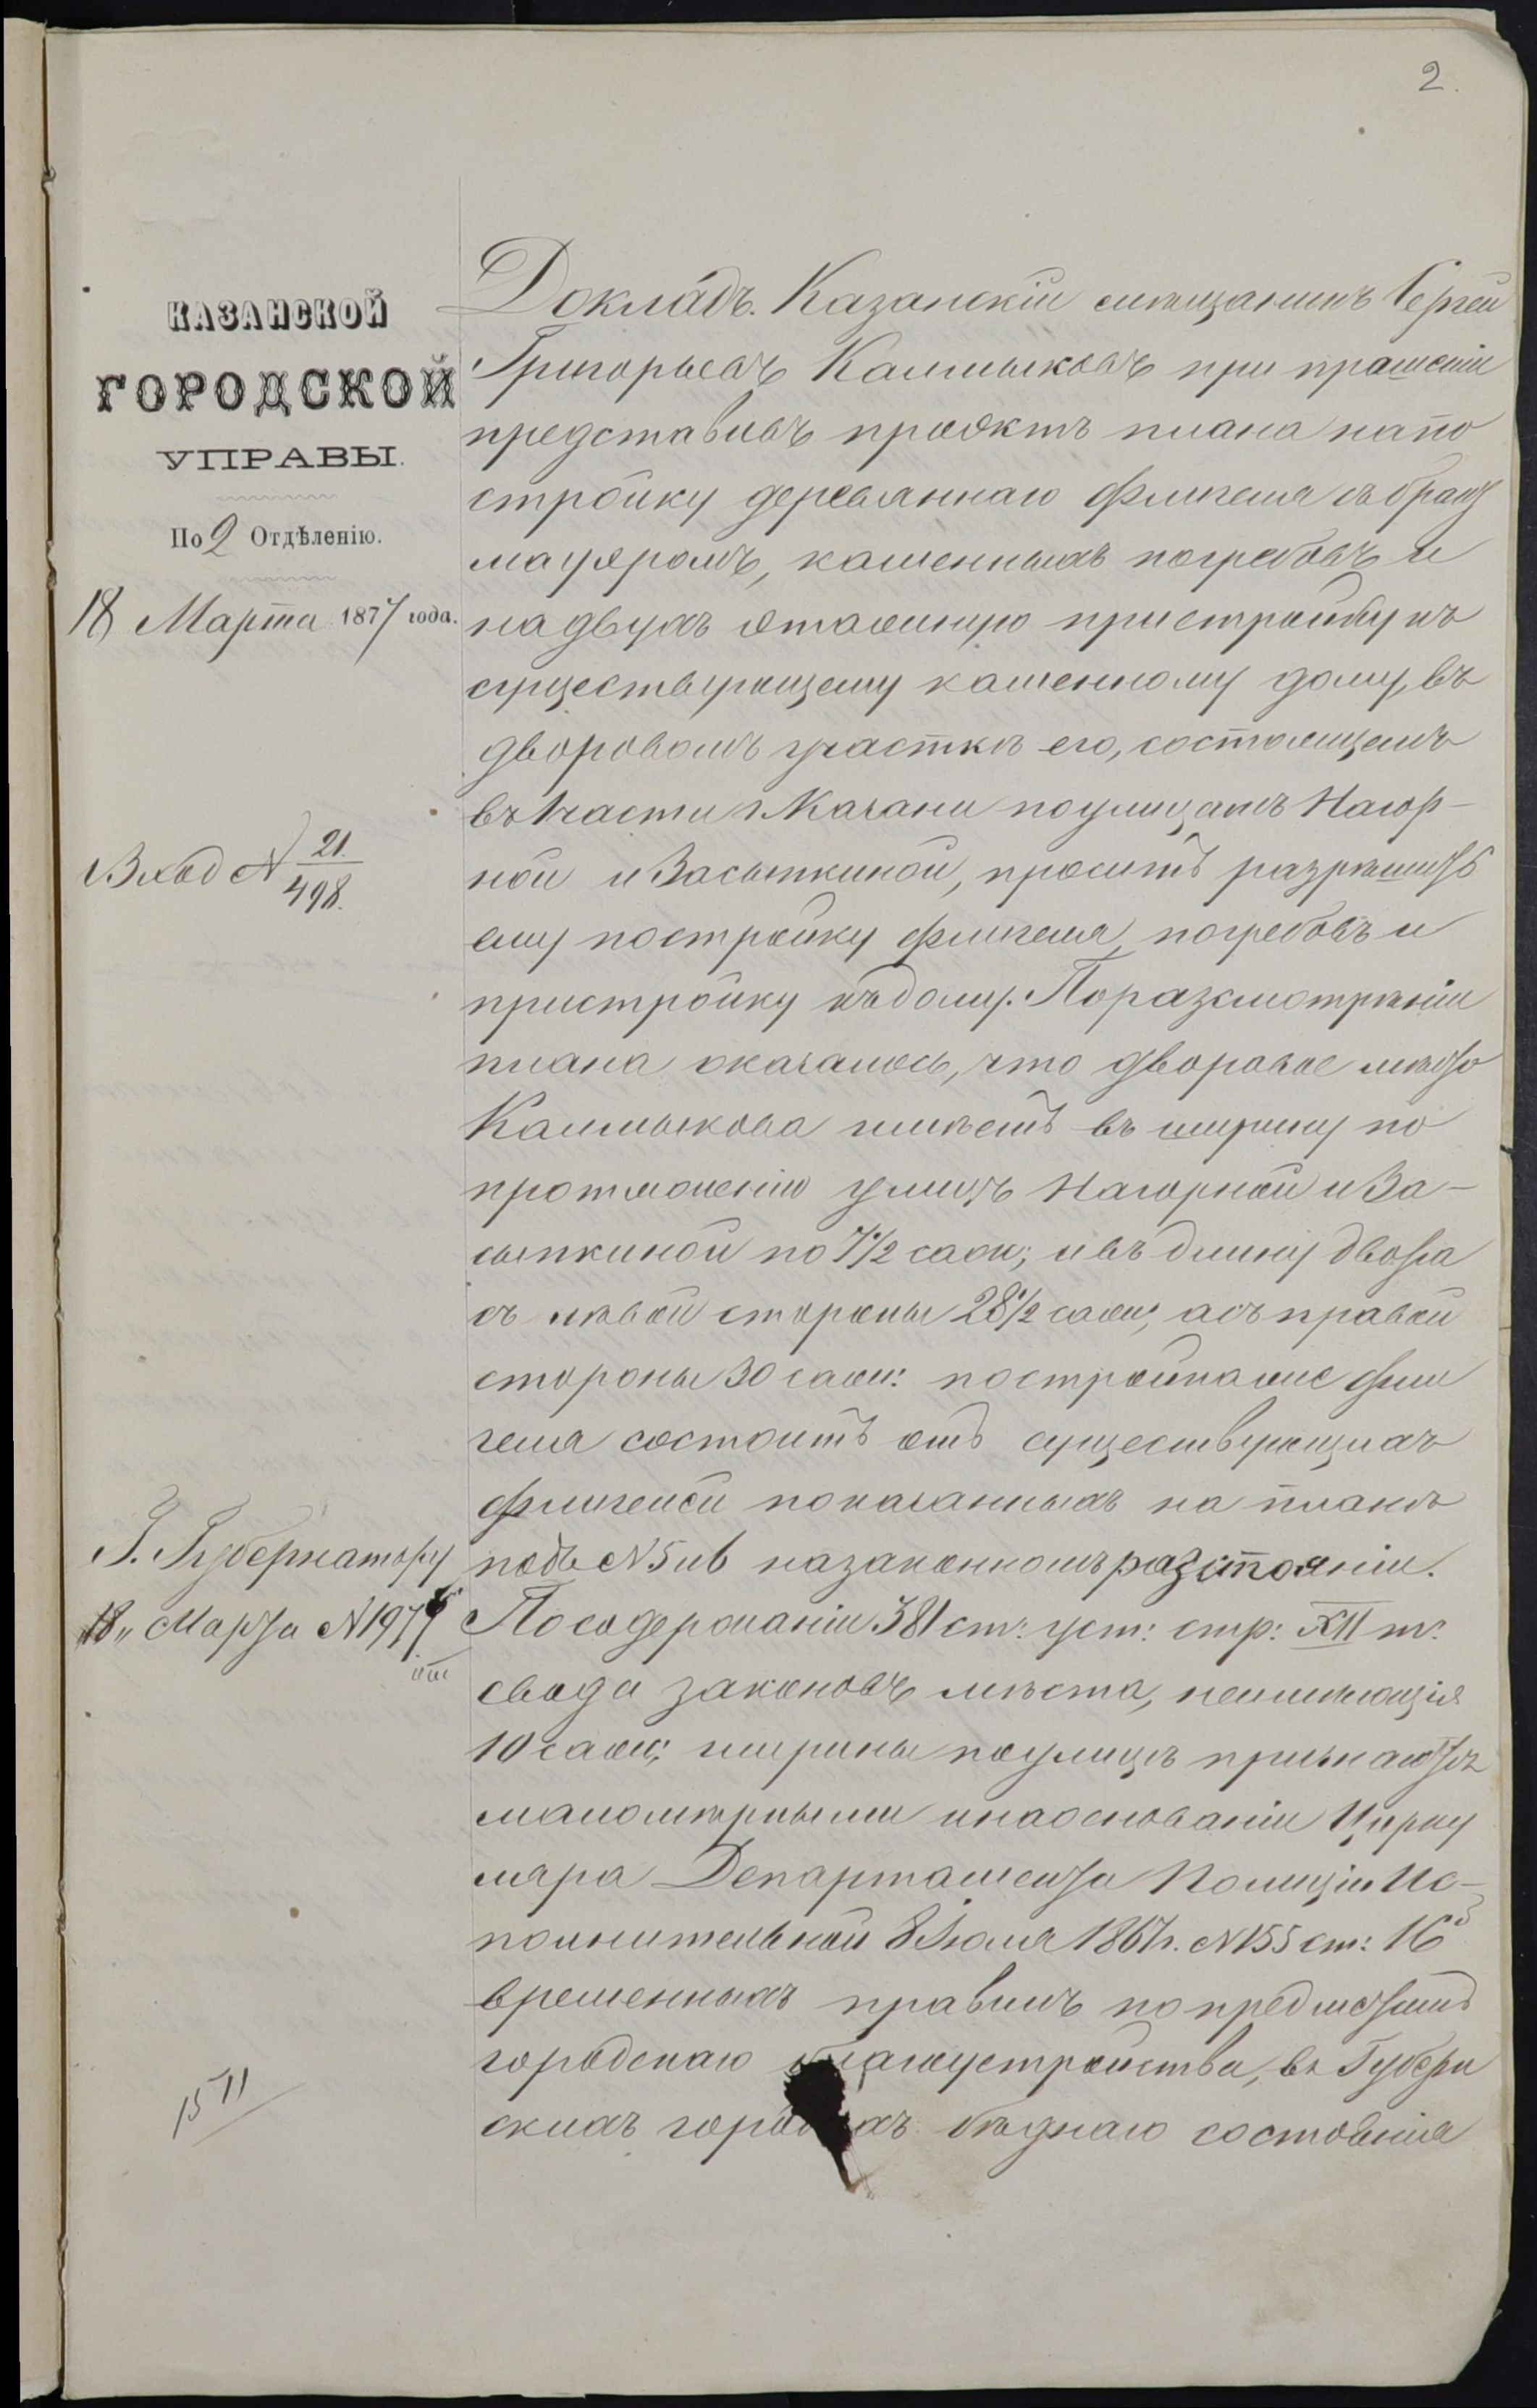 2.
КАЗАНСКОЙ
ГОРОДСКОЙ
УПРАВЫ.
По 2 Отдѣленію.
18 Марта 1877 года.
Вход № 21/498.
Г. Губернатору
"18" Марта № 1977
1511
Докладъ. Казанскій мѣщанинъ Сергѣй
Григорьевъ Калмыковъ при прошеніи
представивъ проэктъ плана на по
стройку деревяннаго флигеля съ бранд
мауэромъ, каменныхъ погребовъ и
на двухъ этажную пристройку къ
существующему каменному дому, въ
дворовомъ участкѣ его, состоящемъ
въ 1 части г. Казани по улицамъ Нагор-
ной и Засыпкиной, проситъ разрѣшить
ему постройку флигеля, погребовъ и
пристройку къ дому. По разсмотрѣніи
плана оказалось, что дворовое мѣсто
Калмыкова имѣетъ въ ширину по
протяженію улицъ Нагорной и За-
сыпкиной по 7 1/2 саж; и въ длину двора
съ лѣвой стороны 28 1/2 саж; а съ правой
стороны 30 саж: постройка же фли
геля состоитъ отъ существующихъ
флигелей показанныхъ на планѣ
подъ № 5 и 6 на законномъ разстояніи.
По содержанію 381 ст: уст: стр: XII т:
свода законовъ мѣста, неимѣющія
10 саж; ширины по улицѣ признаются
маломѣрными и на основаніи Цирку
ляра Департамента Полиціи Ис-
полнительной 8 Іюля 1867 г. № 155 ст: 16
временныхъ правилъ по предметамъ
городскаго благоустройства, въ Губерн
скихъ городахъ бѣднаго состоянія